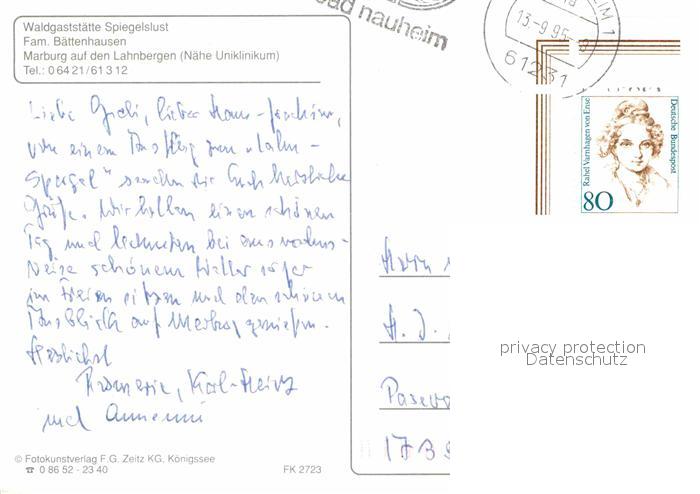 Waldgaststätte Spiegelslust
Fam. Bättenhausen
Marburg auf den Lahnbergen (Nähe Uniklinikum)
Tel.: 0 64 21/61 3 12
bad nauheim
HEIM 1
13.-9.95
61231
Deutsche Bundespost
Rahel Varnhagen von Ense
80
Liebe Gudi, lieber Hans-Joachim,
von einem Ausflug zum "Lahn-
Spargel" senden wir Euch herzliche
Grüße. Wir hatten einen schönen
Tag und konnten bei
schönem Wetter sogar
im Freien sitzen und den schönen
Ausblick auf Marburg genießen.
Herzlichst
Rosmarie, Karl-Heinz
und Annemi
Herrn
H. J.
Pasew
173
privacy protection
Datenschutz
© Fotokunstverlag F.G. Zeitz KG, Königssee
☎ 0 86 52 - 23 40
FK 2723